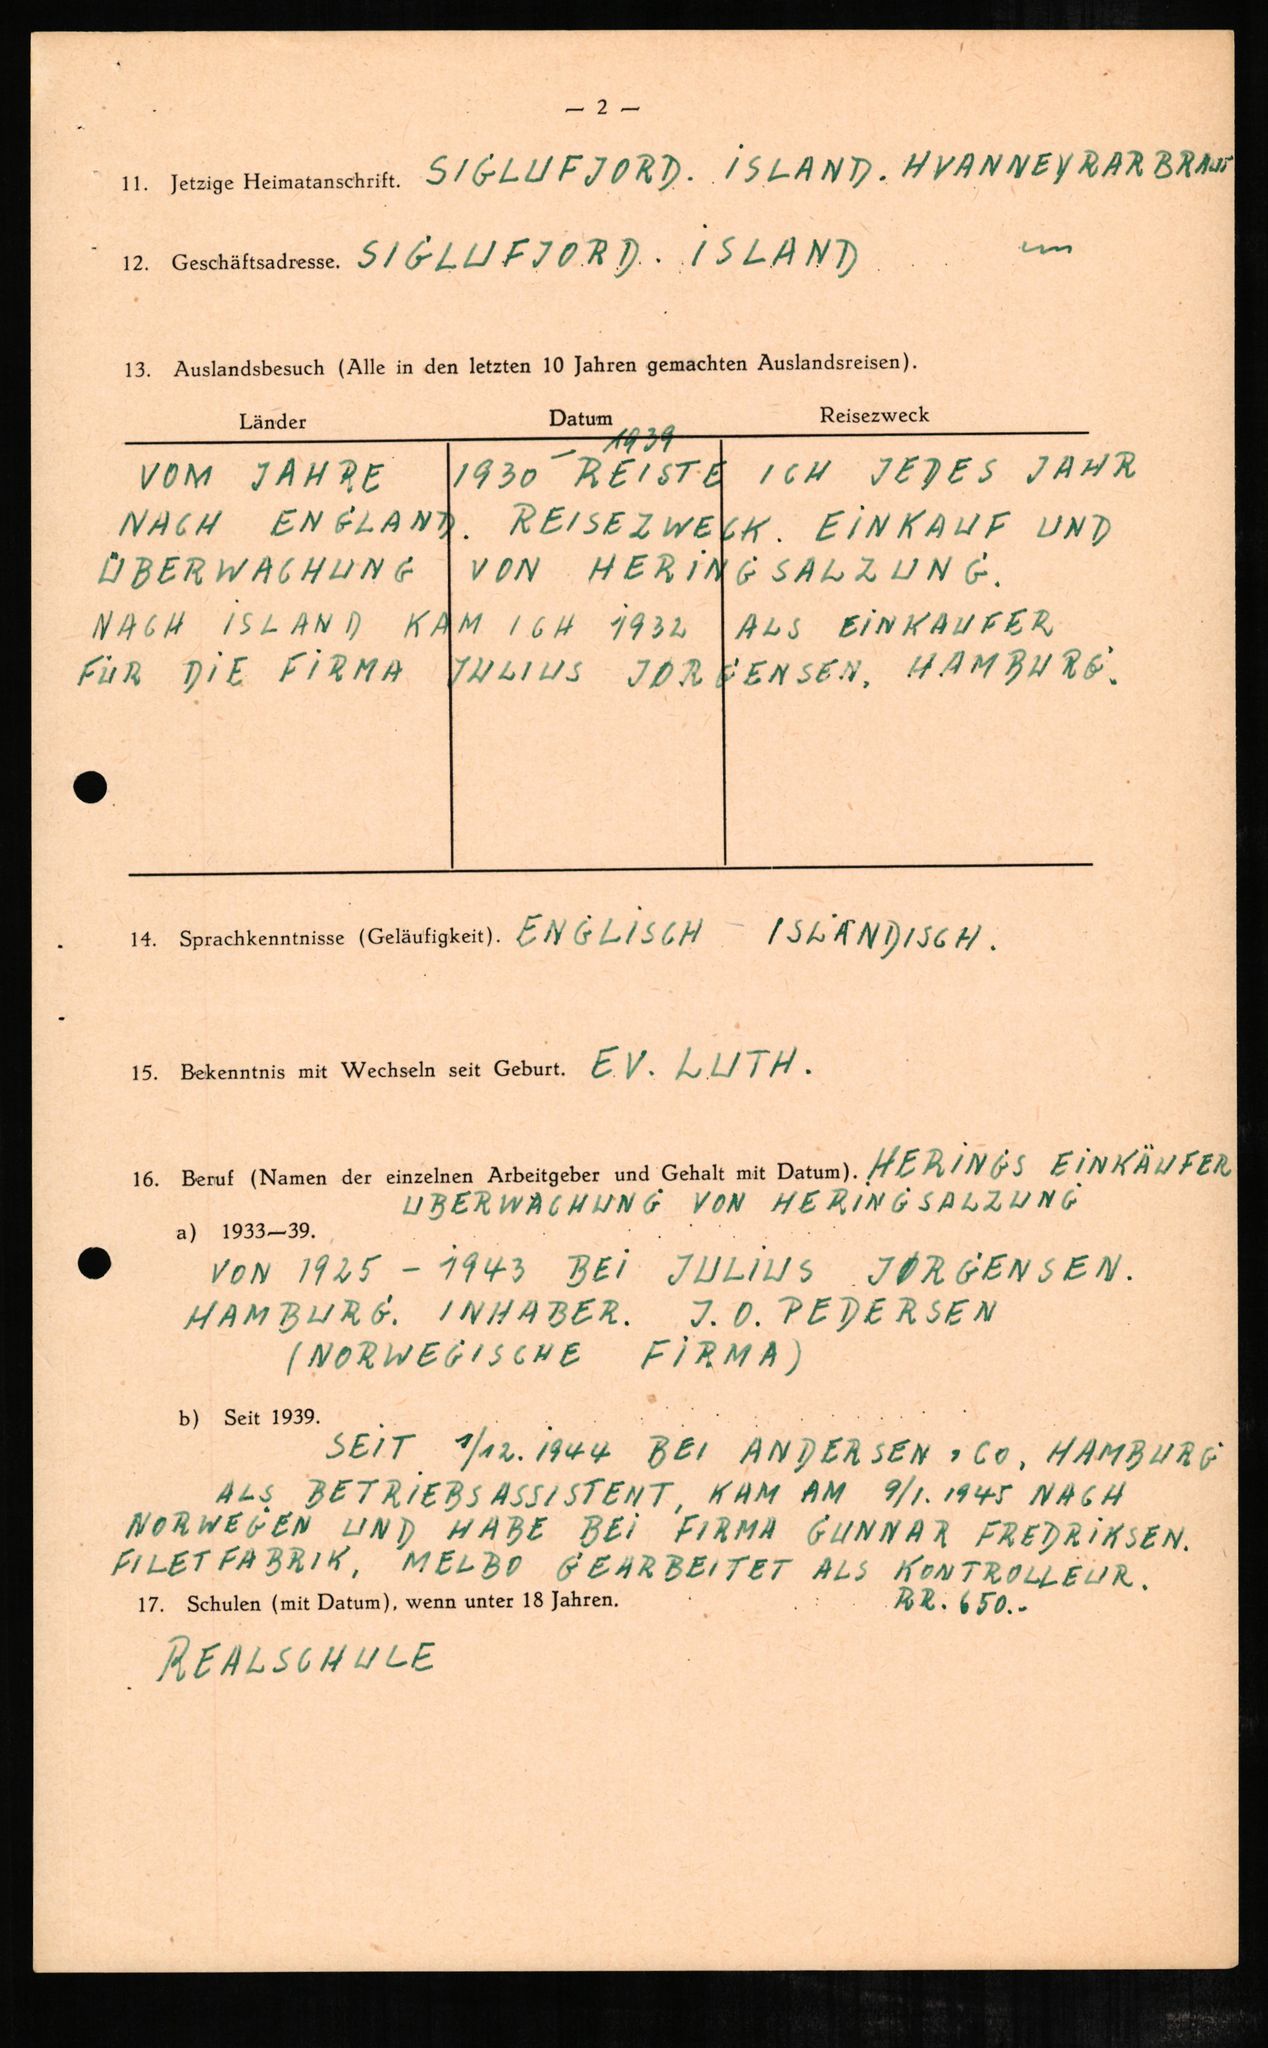 — 2 —
11. Jetzige Heimatanschrift. SIGLUFJORD. ISLAND. HVANNEYRARBRAUT
12. Geschäftsadresse. SIGLUFJORD. ISLAND
13. Auslandsbesuch (Alle in den letzten 10 Jahren gemachten Auslandsreisen).
Länder Datum Reisezweck
VOM JAHRE 1930 – 1939 REISTE ICH JEDES JAHR
NACH ENGLAND. REISEZWECK. EINKAUF UND
ÜBERWACHUNG VON HERINGSALZUNG.
NACH ISLAND KAM ICH 1932 ALS EINKAUFER
FÜR DIE FIRMA JULIUS JORGENSEN, HAMBURG.
14. Sprachkenntnisse (Geläufigkeit). ENGLISCH – ISLÄNDISCH.
15. Bekenntnis mit Wechseln seit Geburt. EV. LUTH.
16. Beruf (Namen der einzelnen Arbeitgeber und Gehalt mit Datum). HERINGS EINKÄUFER
UBERWACHUNG VON HERINGSALZUNG
a) 1933—39.
VON 1925 – 1943 BEI JULIUS JØRGENSEN.
HAMBURG. INHABER. J. O. PEDERSEN
(NORWEGISCHE FIRMA)
b) Seit 1939.
SEIT 1/12. 1944 BEI ANDERSEN & CO, HAMBURG
ALS BETRIEBSASSISTENT, KAM AM 9/1. 1945 NACH
NORWEGEN UND HABE BEI FIRMA GUNNAR FREDRIKSEN.
FILETFABRIK, MELBO GEARBEITET ALS KONTROLLEUR.
RR. 650.-
17. Schulen (mit Datum), wenn unter 18 Jahren.
REALSCHULE